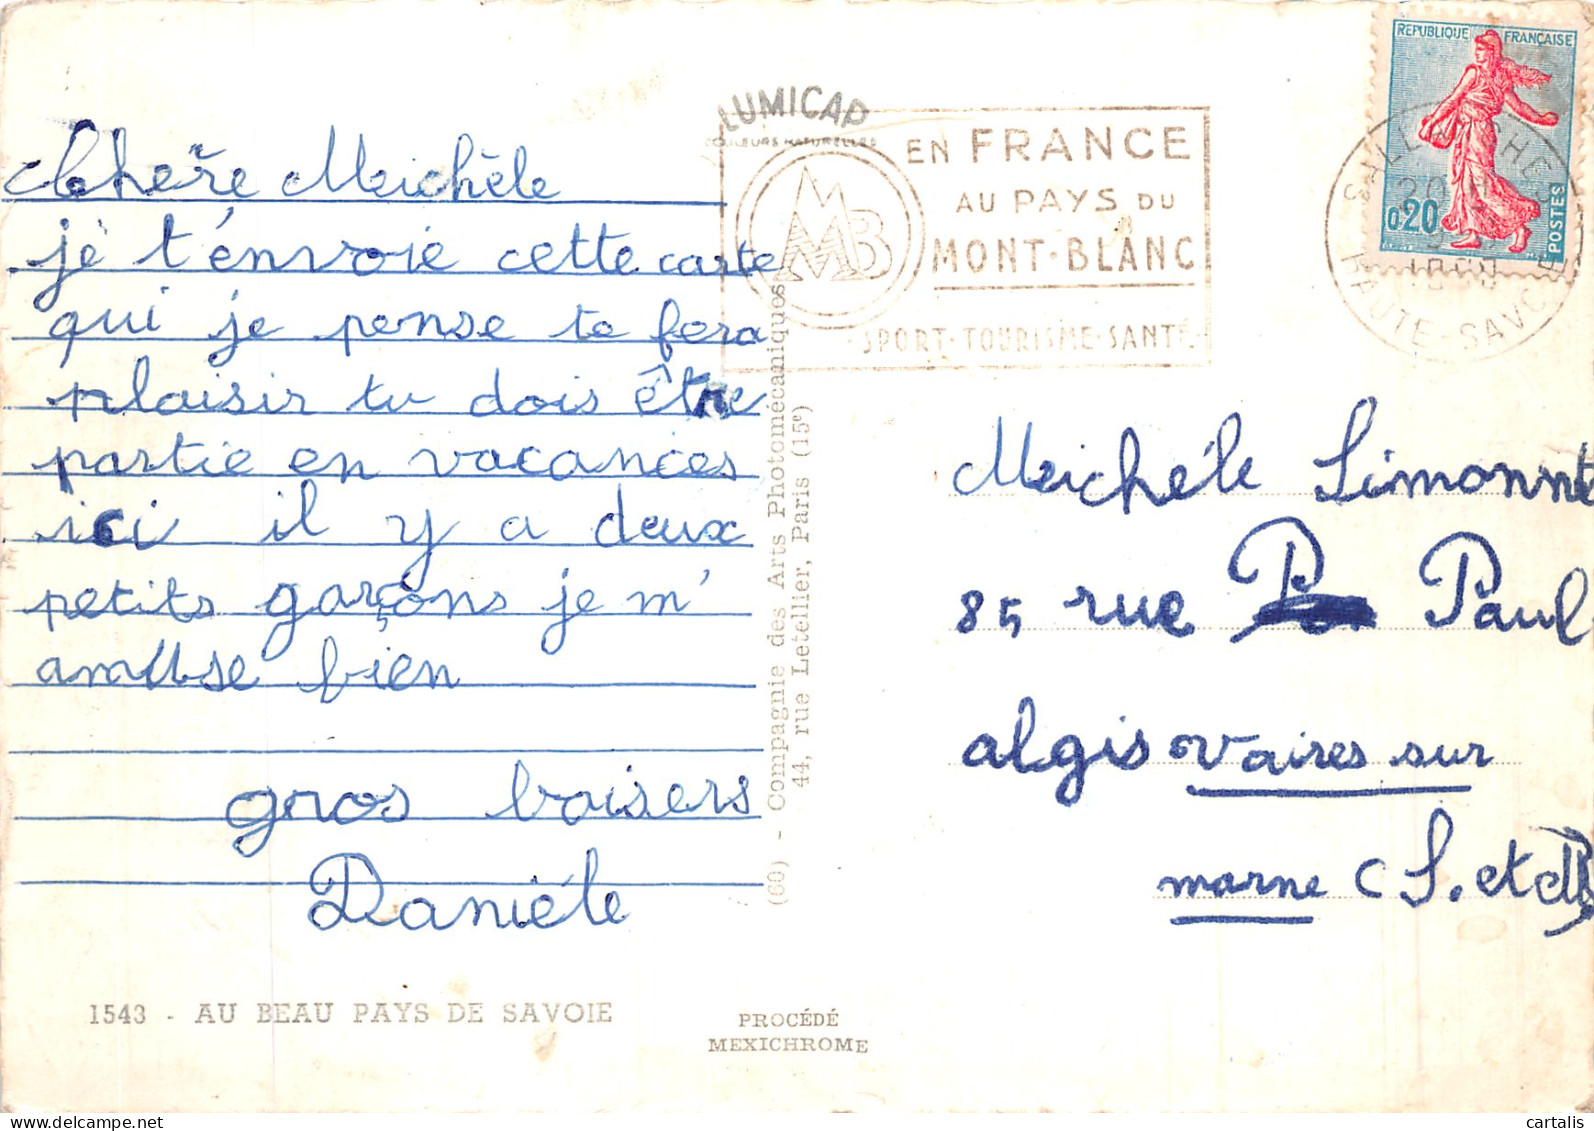 Chère Meichèle
je t'envoie cette carte
qui je pense te fera
plaisir tu dois être
partie en vacances
ici il y a deux
petits garçons je m'
amuse bien
gros baisers
Danièle
1543 - AU BEAU PAYS DE SAVOIE
PROCÉDÉ
MEXICHROME
(60) - Compagnie des Arts Photomécaniques
44, rue Letellier, Paris (15e)
LUMICAP
COULEURS NATURELLES
MB
EN FRANCE
AU PAYS DU
MONT-BLANC
SPORT-TOURISME-SANTÉ
SALLANCHES
HAUTE-SAVOIE
REPUBLIQUE FRANÇAISE
0,20
POSTES
Meichéle Simonnt
85 rue Paul
algis vaires sur
marne (S. et M)
cartalis